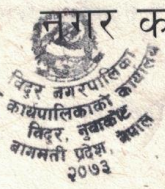 नगर का
विदुर नगरपालिका
कार्यपालिकाको कार्यालय
विदुर, नुवाकोट
बागमती प्रदेश, नेपाल
२०७३